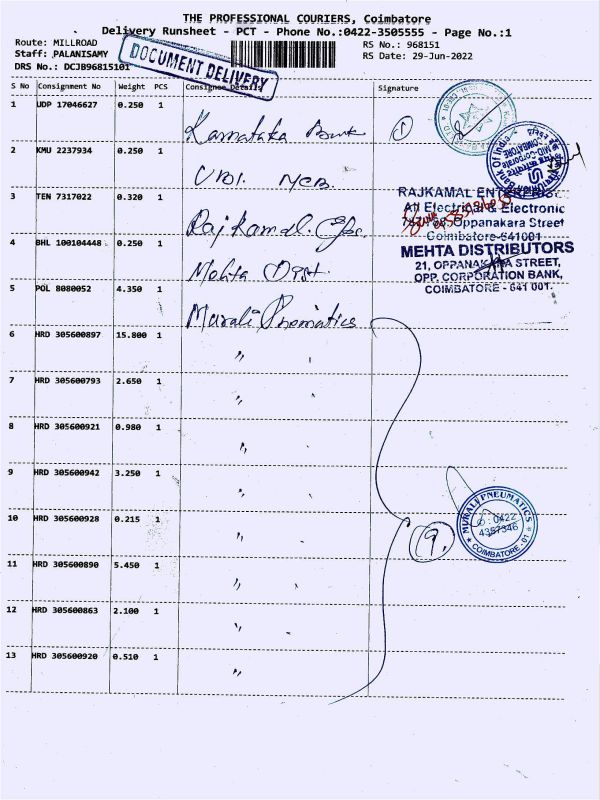 THE PROFESSIONAL COURIERS, Coimbatore
Delivery Runsheet - PCT - Phone No.:0422-3505555 - Page No.:1
Route: MILLROAD
RS No.: 968151
Staff: PALANISAMY
RS Date: 29-Jun-2022
DRS No.: DCJB96815101
DOCUMENT DELIVERY
S No Consignment No Weight PCS Consignee Details Signature
1 UDP 17046627 0.250 1 Karnataka Bank 1
2 KMU 2237934 0.250 1 UBI. MCB.
Union Bank Of India
MID-Corporate
COIMBATORE
3 TEN 7317022 0.320 1 Rajkamal
RAJKAMAL ENTERPRISE
All Electrical & Electronic
Oppanakara Street
Coimbatore-641001
4 BHL 100104448 0.250 1 Mehta Dist.
MEHTA DISTRIBUTORS
21, OPPANAKARA STREET,
OPP. CORPORATION BANK,
COIMBATORE - 641 001.
5 POL 8080052 4.350 1 Murali Pnematics
6 HRD 305600897 15.800 1 〃
7 HRD 305600793 2.650 1 〃
8 HRD 305600921 0.980 1 〃
9 HRD 305600942 3.250 1 〃
10 HRD 305600928 0.215 1 〃
9.
MURALI PNEUMATICS
: 0422
4387346
COIMBATORE - 01
11 HRD 305600890 5.450 1 〃
12 HRD 305600863 2.100 1 〃
13 HRD 305600920 0.510 1 〃